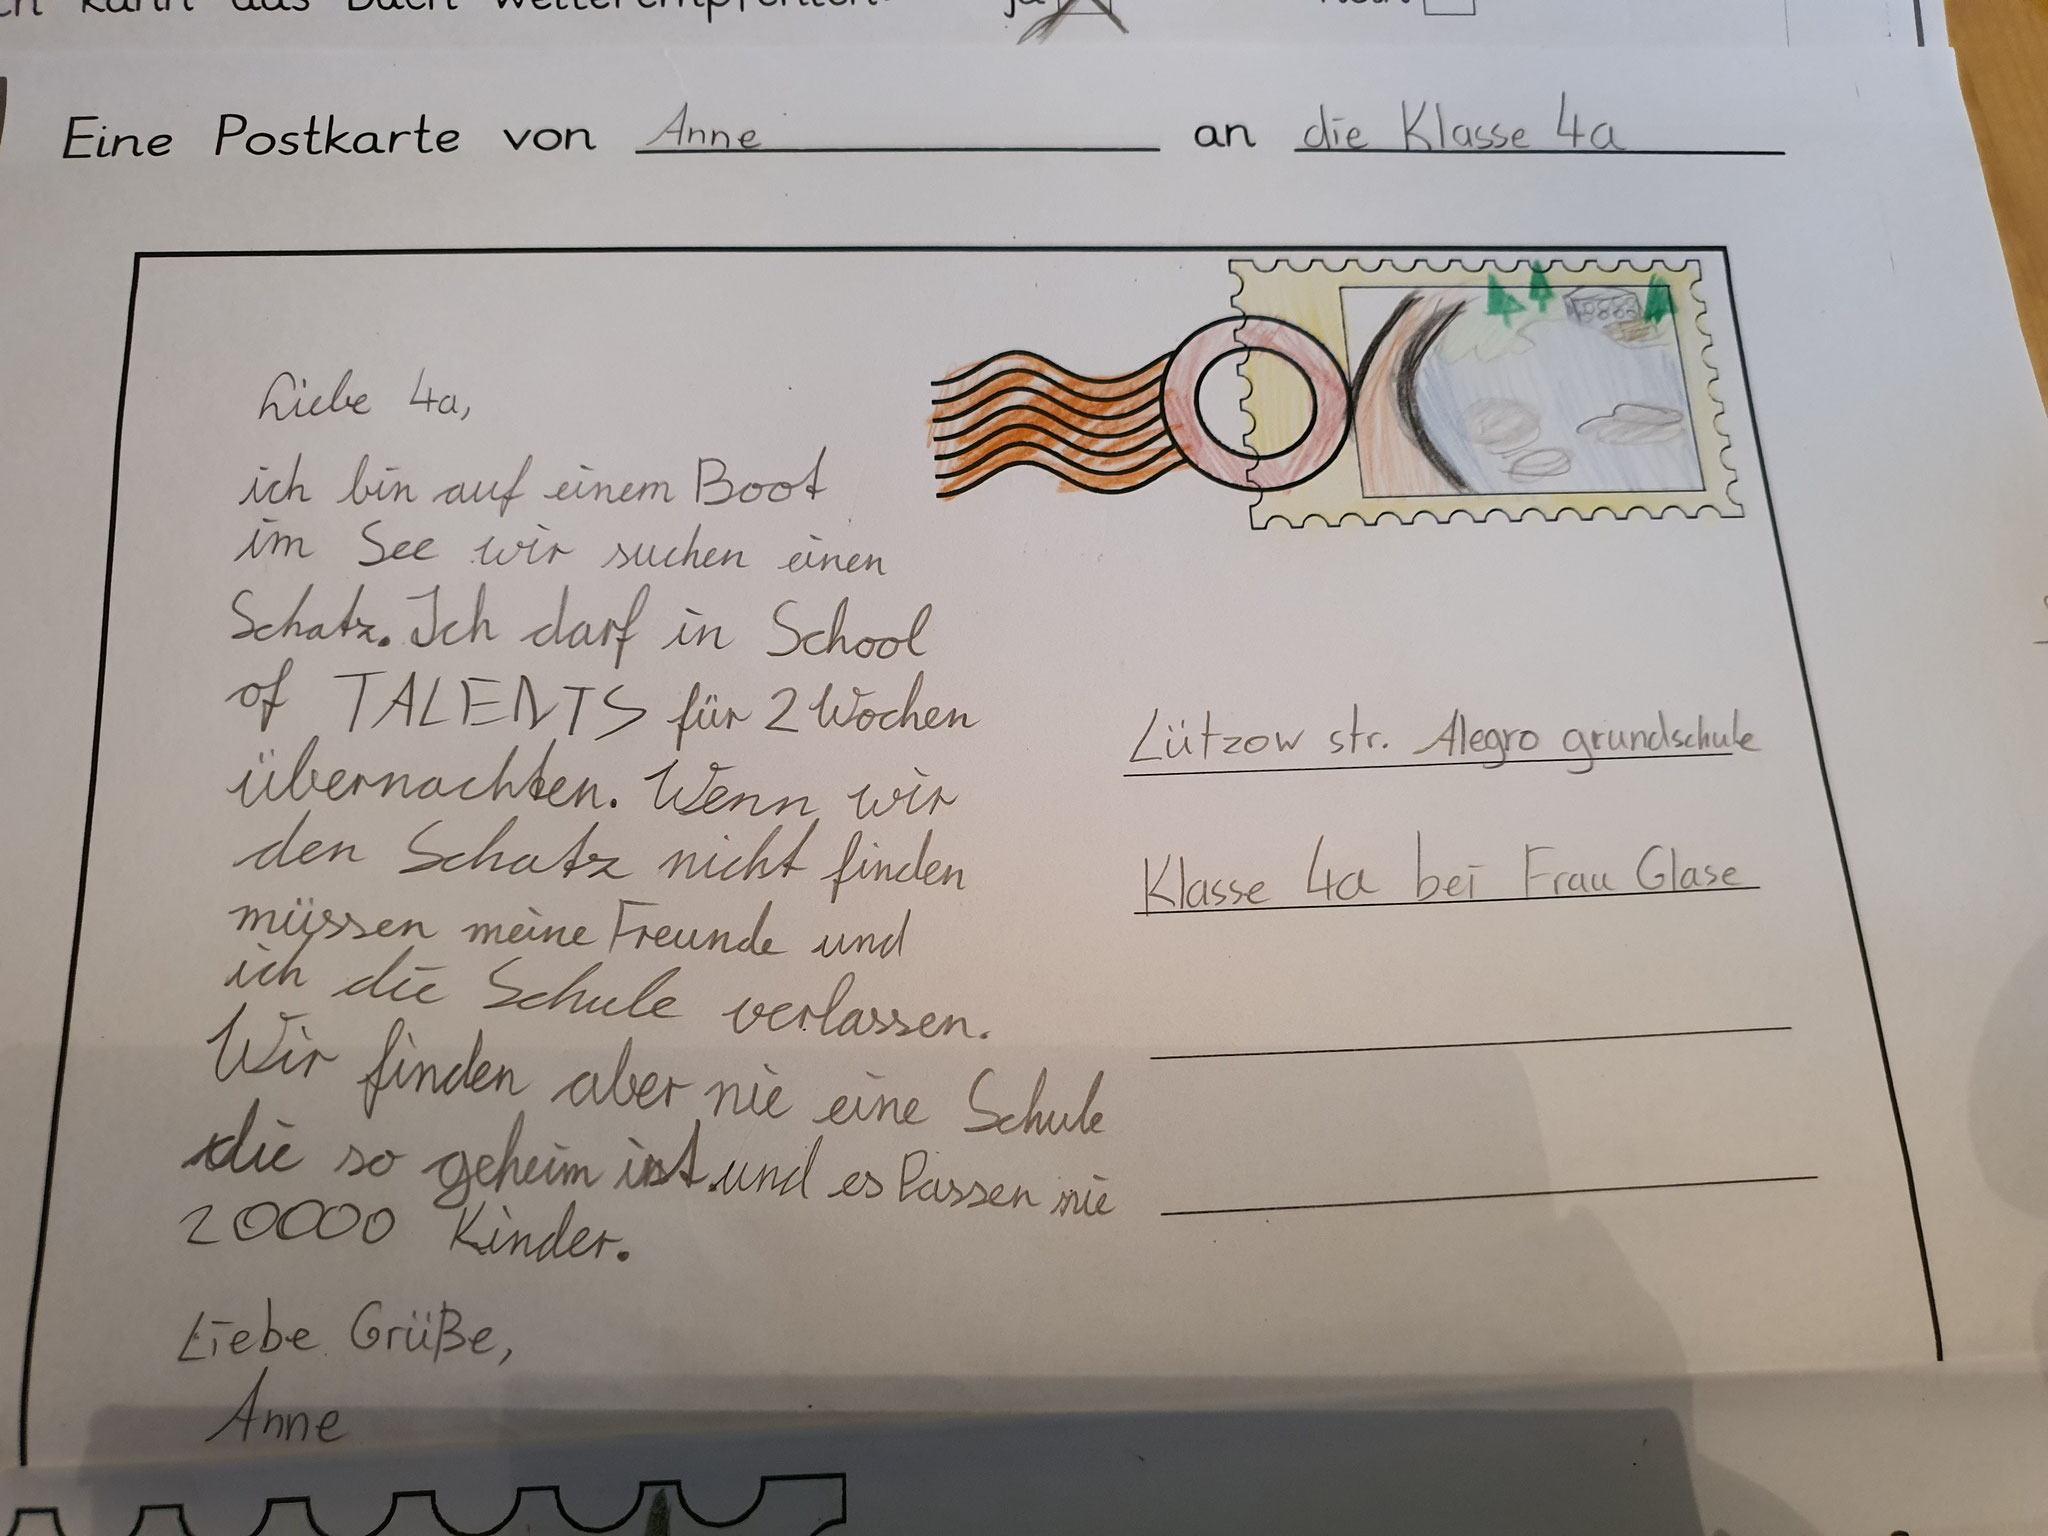 ich kann das Buch weiterempfehlen: ja Nein
Eine Postkarte von Anne an die Klasse 4a
Liebe 4a,
ich bin auf einem Boot
im See wir suchen einen
Schatz. Ich darf in School
of TALENTS für 2 Wochen
übernachten. Wenn wir
den Schatz nicht finden
müssen meine Freunde und
ich die Schule verlassen.
Wir finden aber nie eine Schule
die so geheim ist und es Passen nie
20000 Kinder.
Liebe Grüße,
Anne
Lützow str. Alegro grundschule
Klasse 4a bei Frau Glase